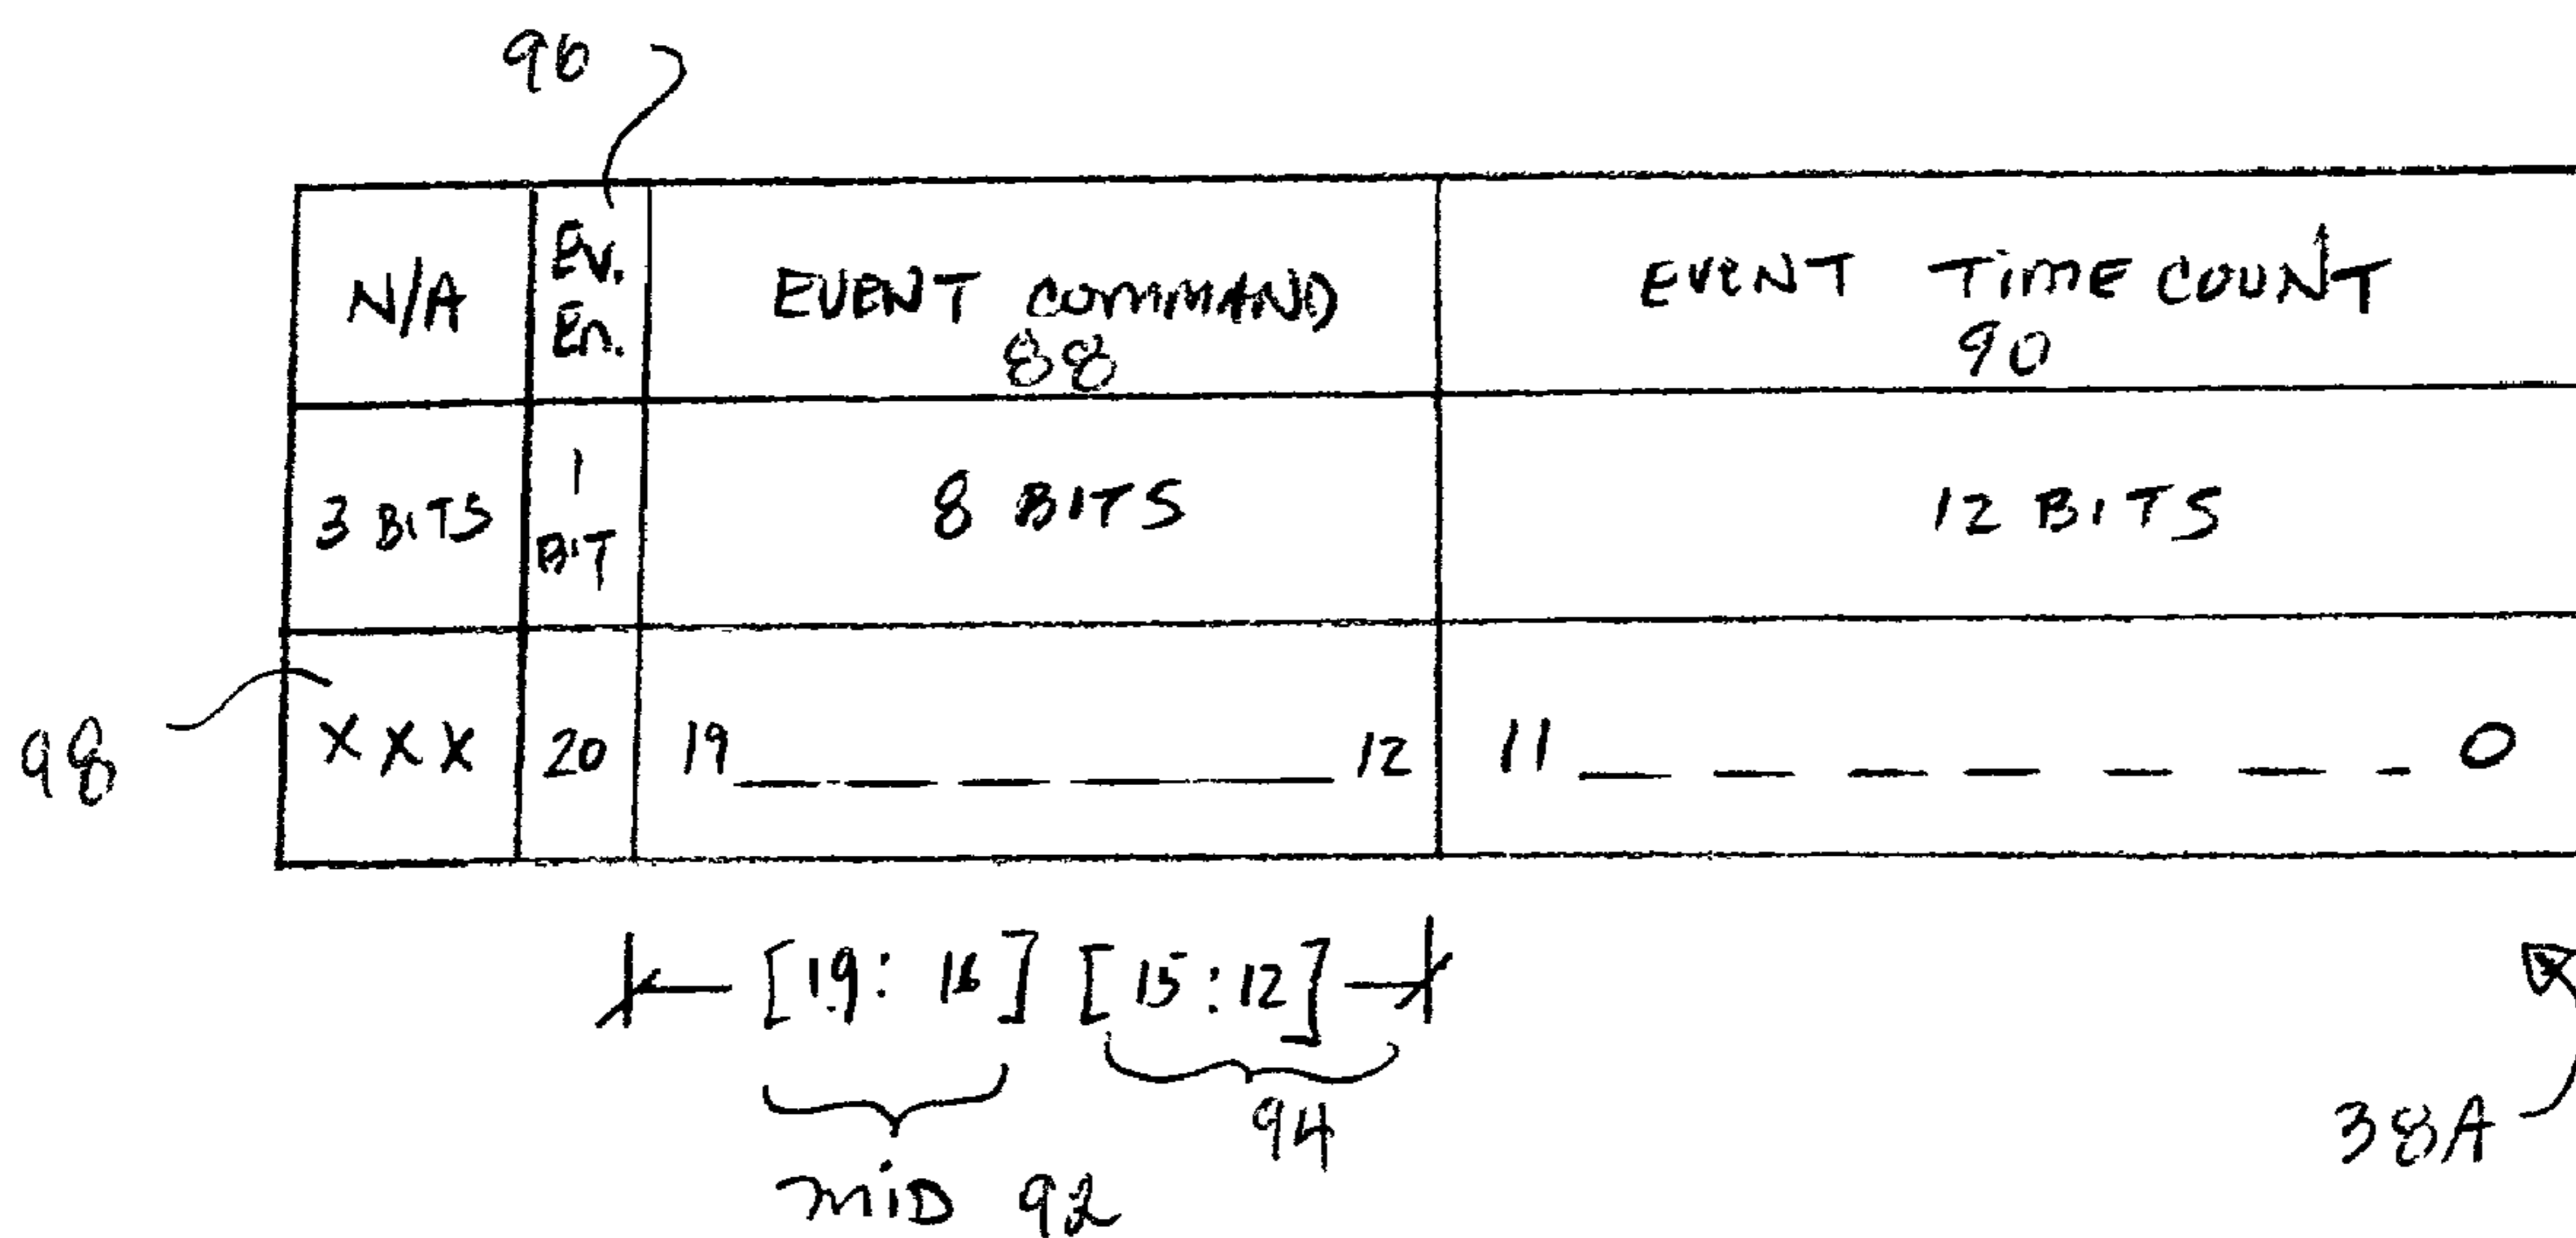 96
N/A Ev. En. EVENT COMMAND 88 EVENT TIME COUNT 90
3 BITS 1 BIT 8 BITS 12 BITS
98 X X X 20 19 12 11 0
[19: 16] [15:12]
94
38A
MID 92